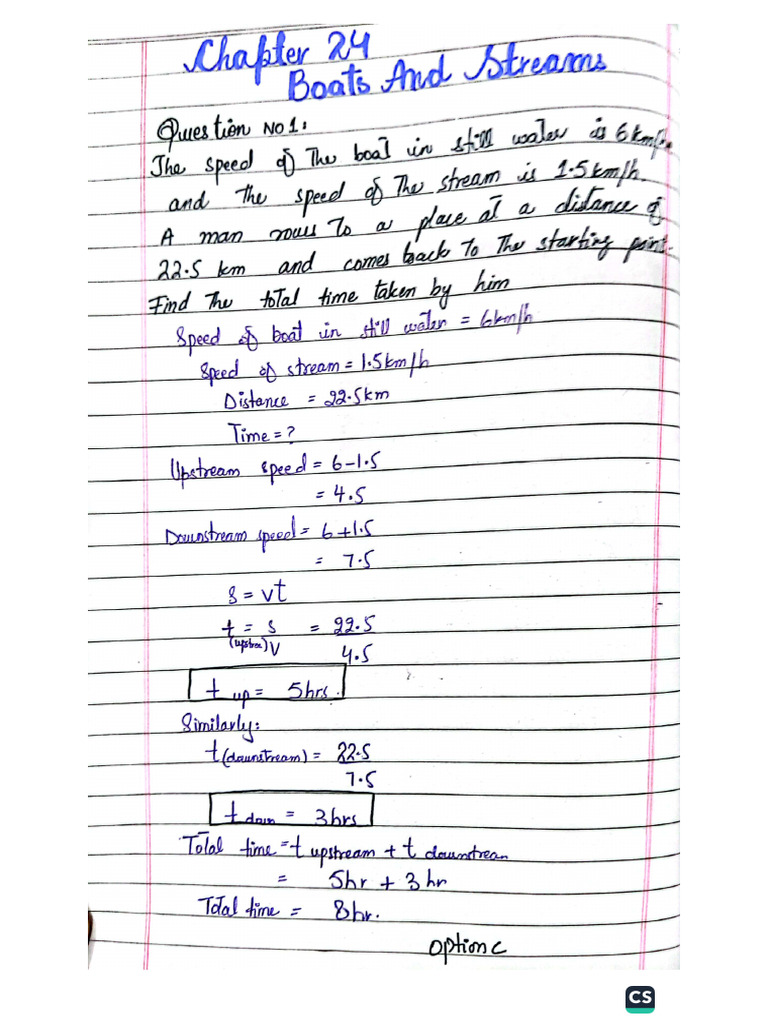 Chapter 24
Boats And Streams
Question NO 1:
The speed of The boat in still water is 6km/h.
and the speed of The stream is 1.5km/h.
A man rows To a place at a distance of
22.5 km and comes back To The starting point.
Find The total time taken by him
Speed of boat in still water = 6km/h
Speed of stream = 1.5km/h
Distance = 22.5km
Time = ?
Upstream speed = 6-1.5
= 4.5
Downstream speed = 6+1.5
= 7.5
S = vt
t = S = 22.5
(upstrea) V 4.5
t up = 5hrs.
Similarly:
t (downstream) = 22.5
7.5
t down = 3hrs
Total time = t upstream + t downstream
= 5hr + 3hr
Total time = 8hr.
option C
CS